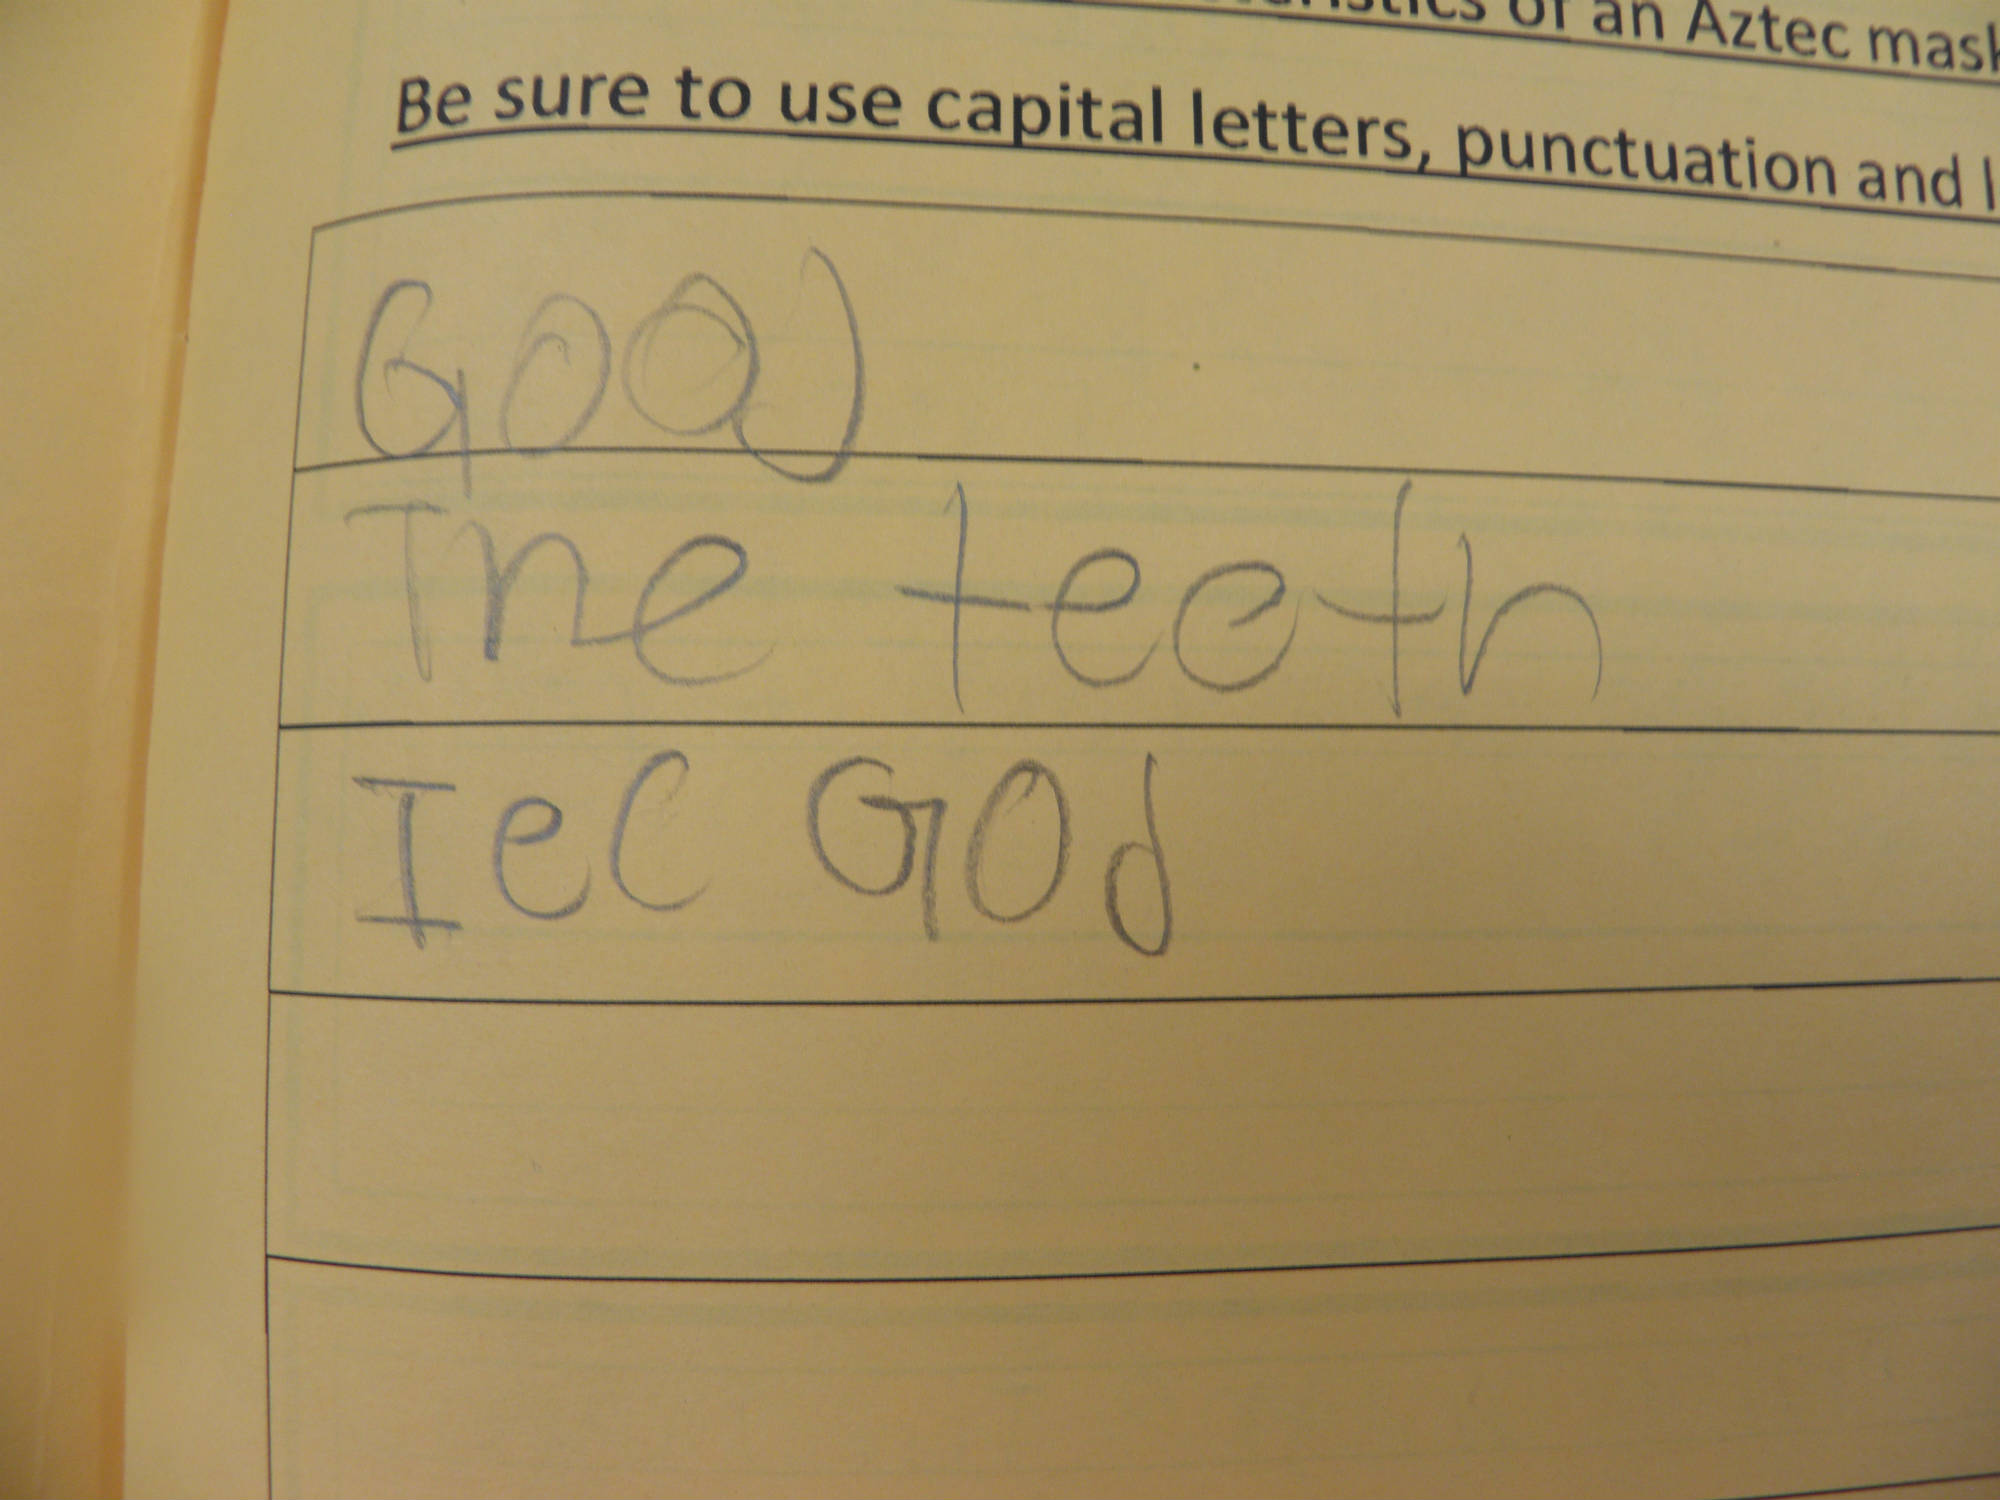 of an Aztec mask
Be sure to use capital letters, punctuation and l
Good
The teeth
Iec God